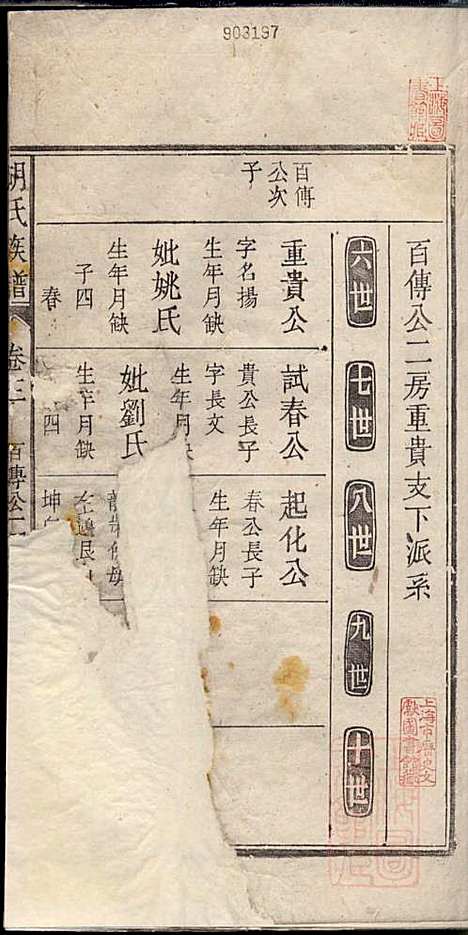 903197
百傳公二房重貴支下派系
六世
七世
八世
九世
十世
百傳
公次
子
重貴公
字名揚
生年月缺
妣姚氏
生年月缺
子四
春
試春公
貴公長子
字長文
生年月缺
妣劉氏
生年月缺
四
起化公
春公長子
生年月缺
坤
胡氏族譜
卷三
百傳公
上海市歷史文
獻圖書館藏